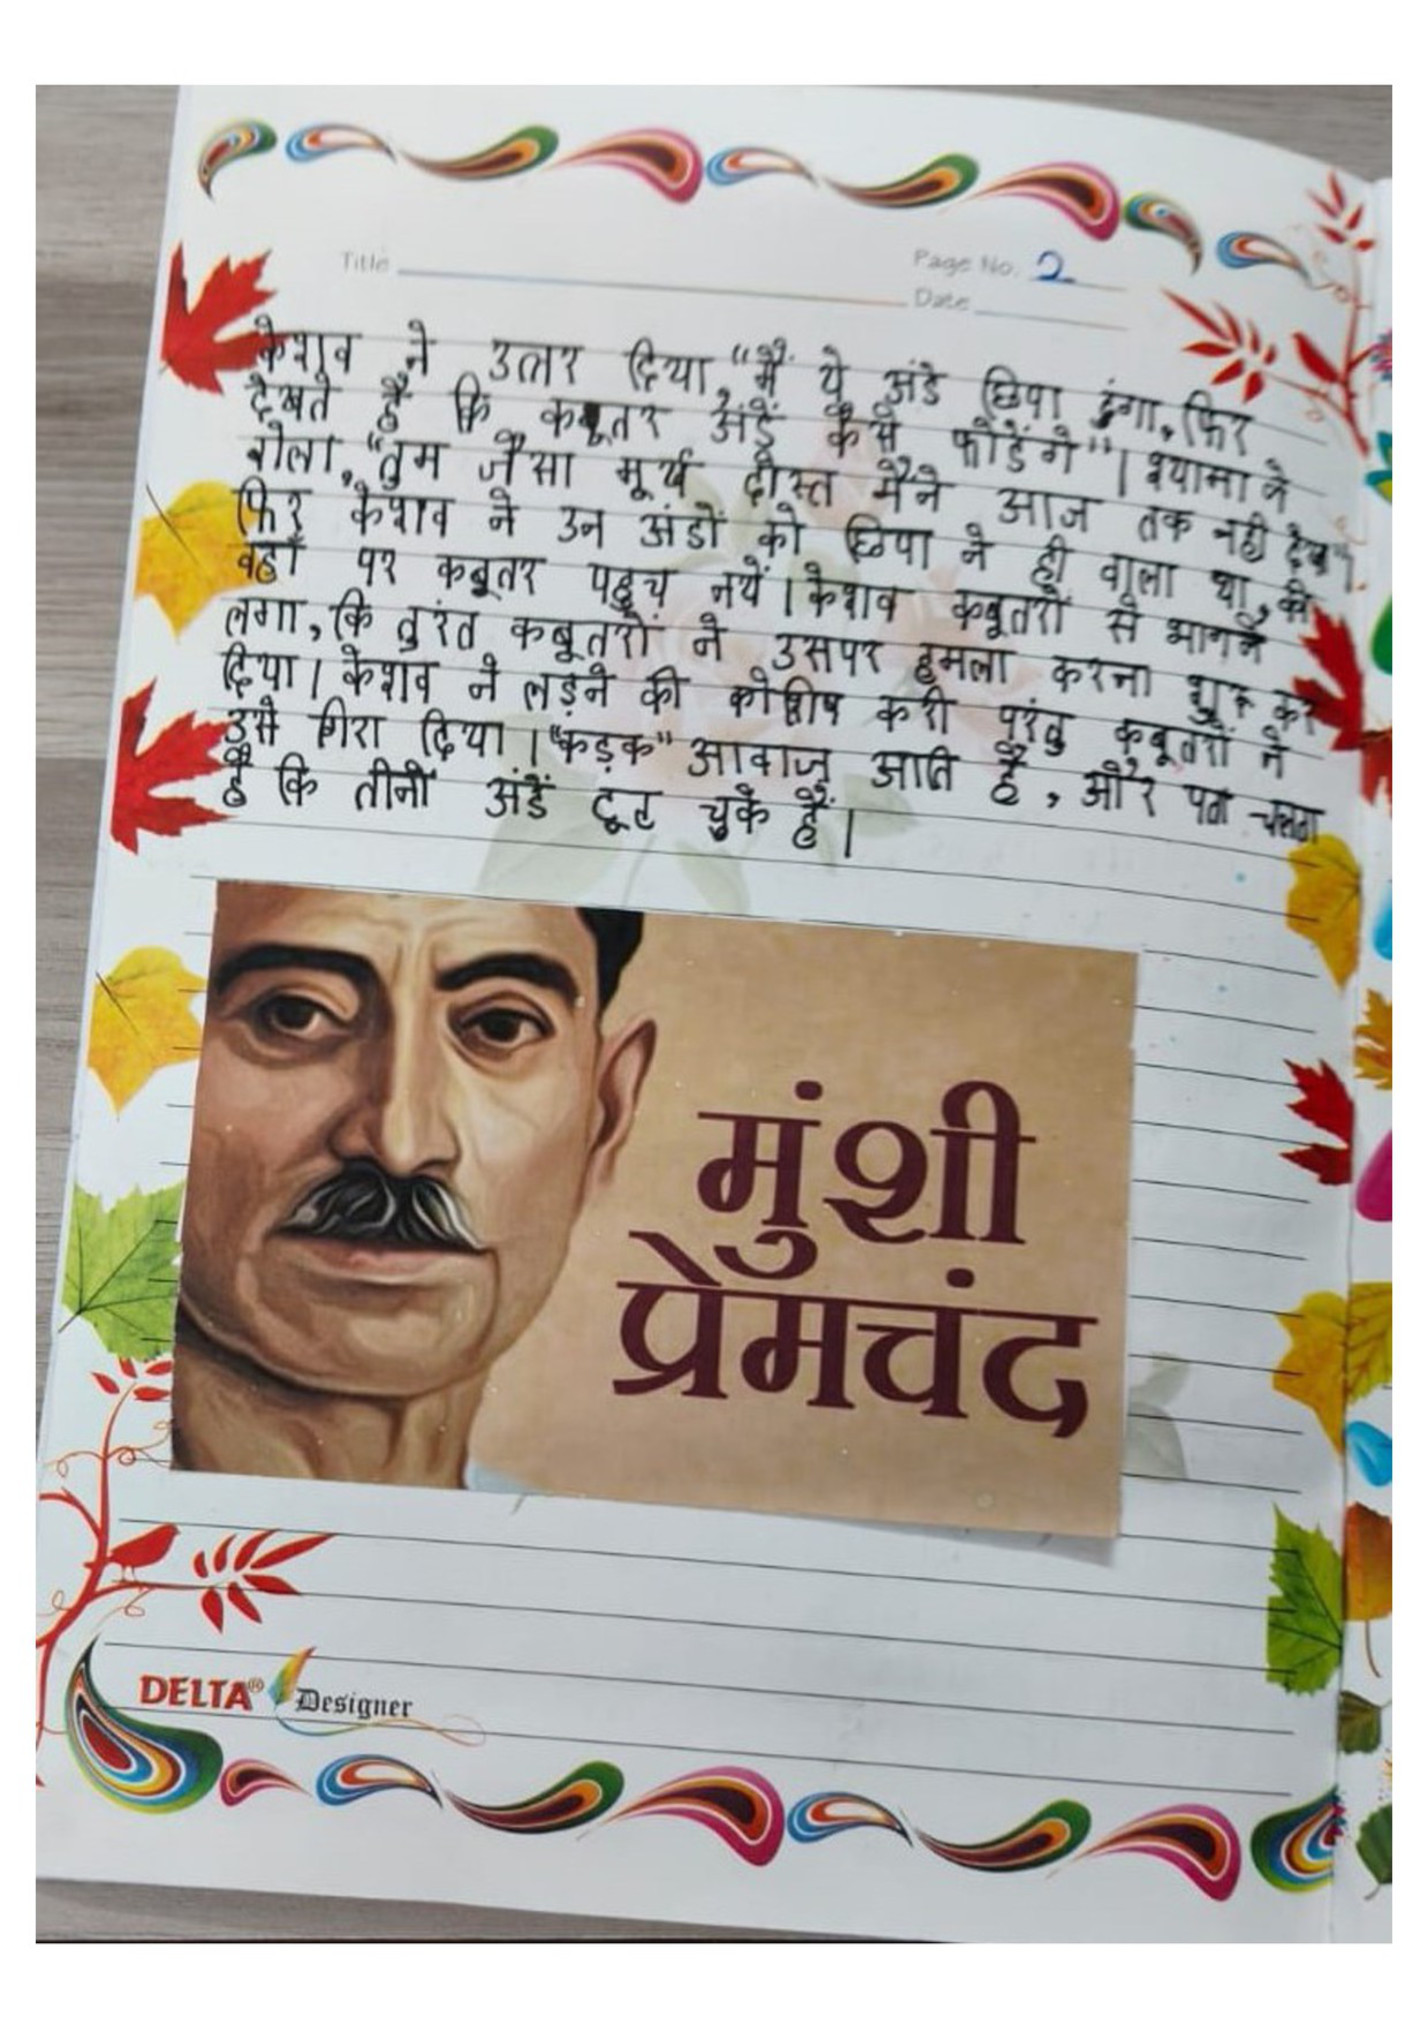 Title
Page No. 2
Date
केशव ने उत्तर दिया, "मैं ये अंडे छिपा दुंगा, फिर
देखते हैं कि कबूतर अंडें कैसे फोडेंगे"। श्यामा ने
बोला, "तुम जैसा मूर्य दोस्त मैंने आज तक नही देखा"।
फिर केशव ने उन अंडों को छिपा ने ही वाला था, की
वहाँ पर कबूतर पहुच गयें। केशव कबूतरों से भागने
लगा, कि तुरंत कबूतरों ने उसपर हमला करना शुरू कर
दिया। केशव ने लड़ने की कोशिष करी परंतु कबूतरों ने
उसे गिरा दिया। "कड़क" आवाज़ आति है, और पता चलता
है कि तीनों अंडें टूट चुके हैं।
मुंशी
प्रेमचंद
DELTA® Designer